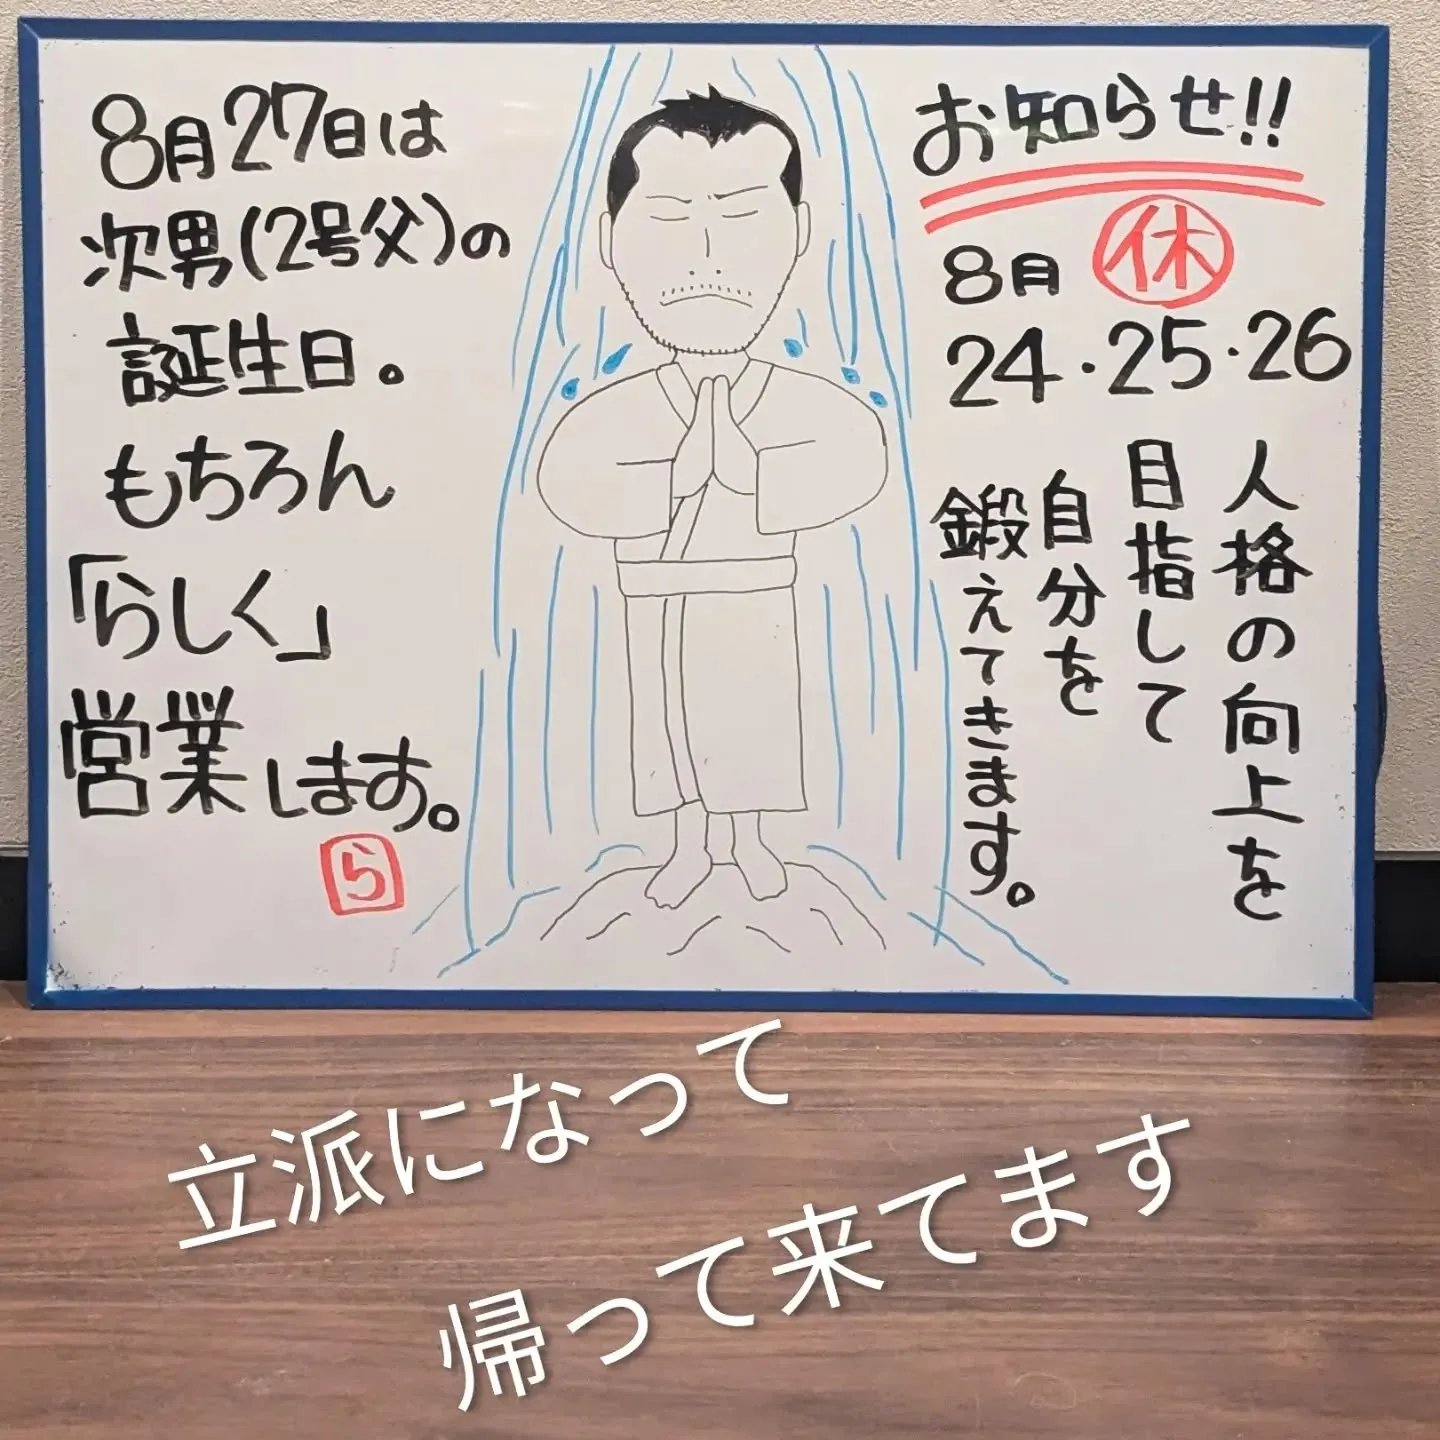 お知らせ!!
8月 休
24・25・26
人格の向上を
目指して
自分を
鍛えてきます。
8月27日は
次男(2号父)の
誕生日。
もちろん
「らしく」
営業します。
ら
立派になって
帰って来てます